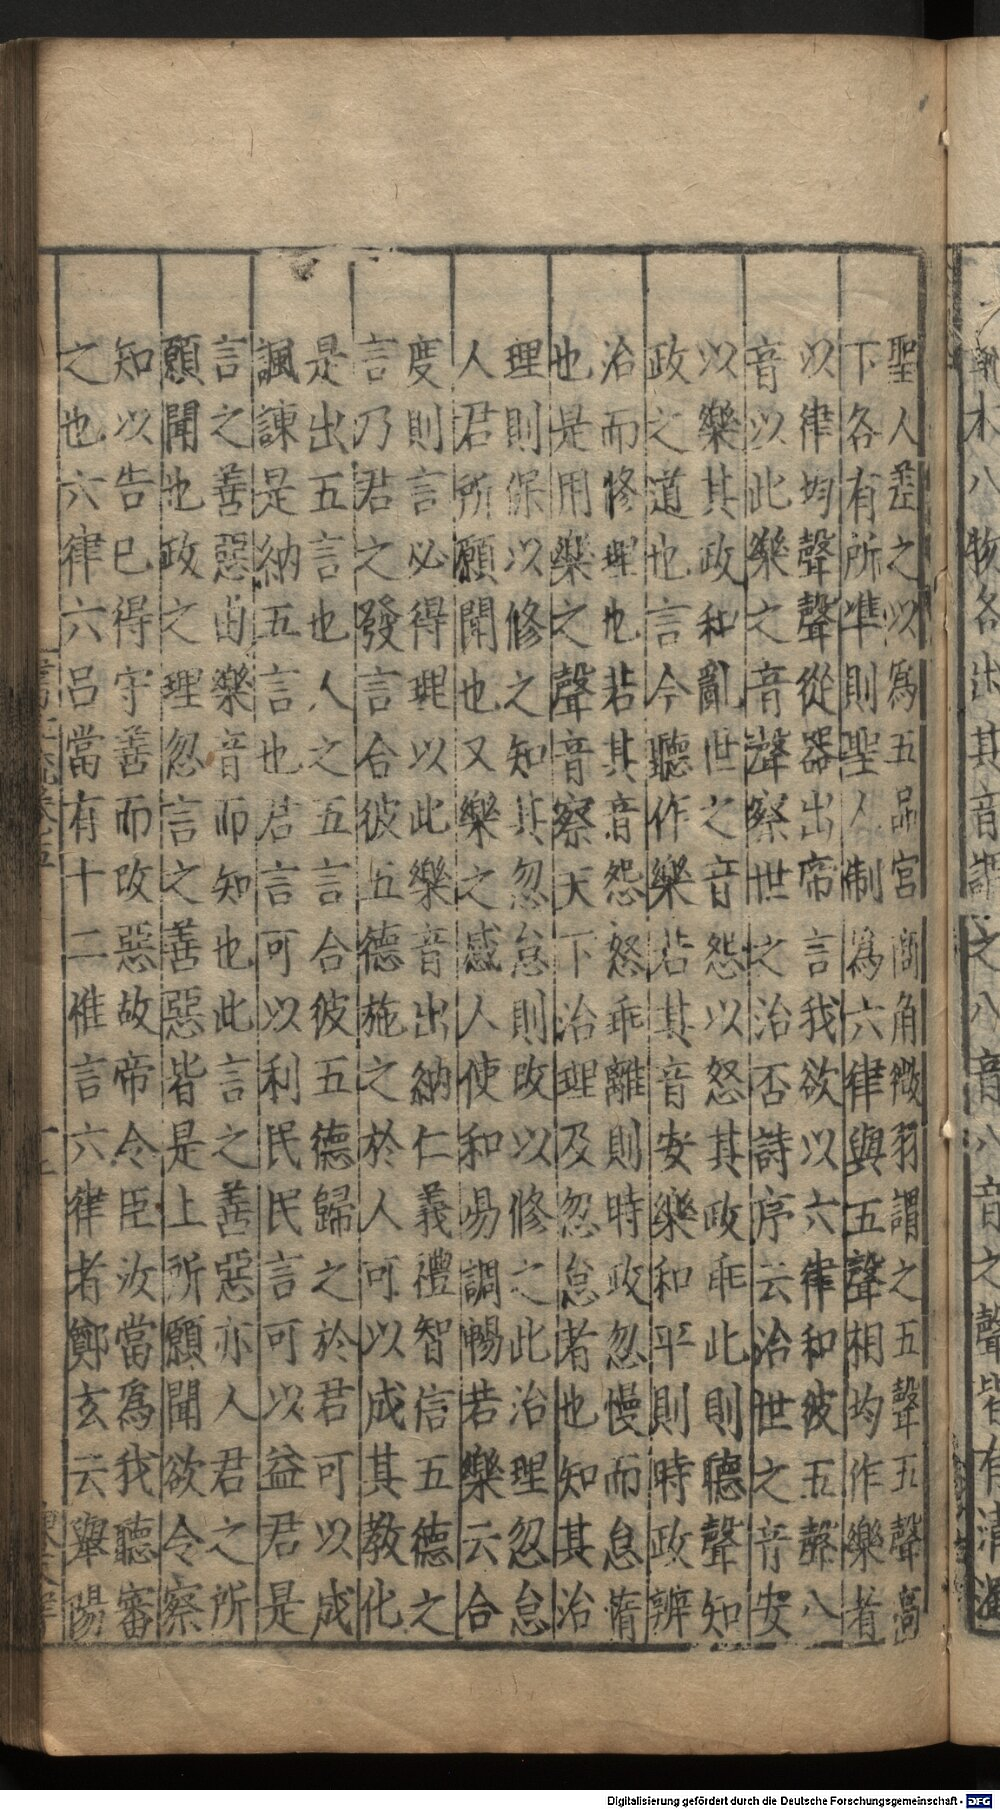 木八物各出其音謂之八音八音之聲皆有清濁
聖人差之以爲五品宮商角徵羽謂之五聲五聲高
下各有所準則聖人制爲六律與五聲相均作樂者
以律均聲聲從器出帝言我欲以六律和彼五聲八
音以此樂之音聲察世之治否詩序云治世之音安
以樂其政和亂世之音怨以怒其政乖此則聽聲知
政之道也言今聽作樂若其音安樂和平則時政辨
治而修理也若其音怨怒乖離則時政忽慢而怠惰
也是用樂之聲音察天下治理及忽怠者也知其治
理則保以修之知其忽怠則改以修之此治理忽怠
人君所願聞也又樂之感人使和易調暢若樂云合
度則言必得理以此樂音出納仁義禮智信五德之
言乃君之發言合彼五德施之於人可以成其教化
是出五言也人之五言合彼五德歸之於君可以成
諷諫是納五言也君言可以利民民言可以益君是
言之善惡由樂音而知也此言之善惡亦人君之所
願聞也政之理忽言之善惡皆是上所願聞欲令察
知以告已得守善而改惡故帝令臣汝當爲我聽審
之也六律六呂當有十二惟言六律者鄭玄云舉陽
Digitalisierung gefördert durch die Deutsche Forschungsgemeinschaft - DFG